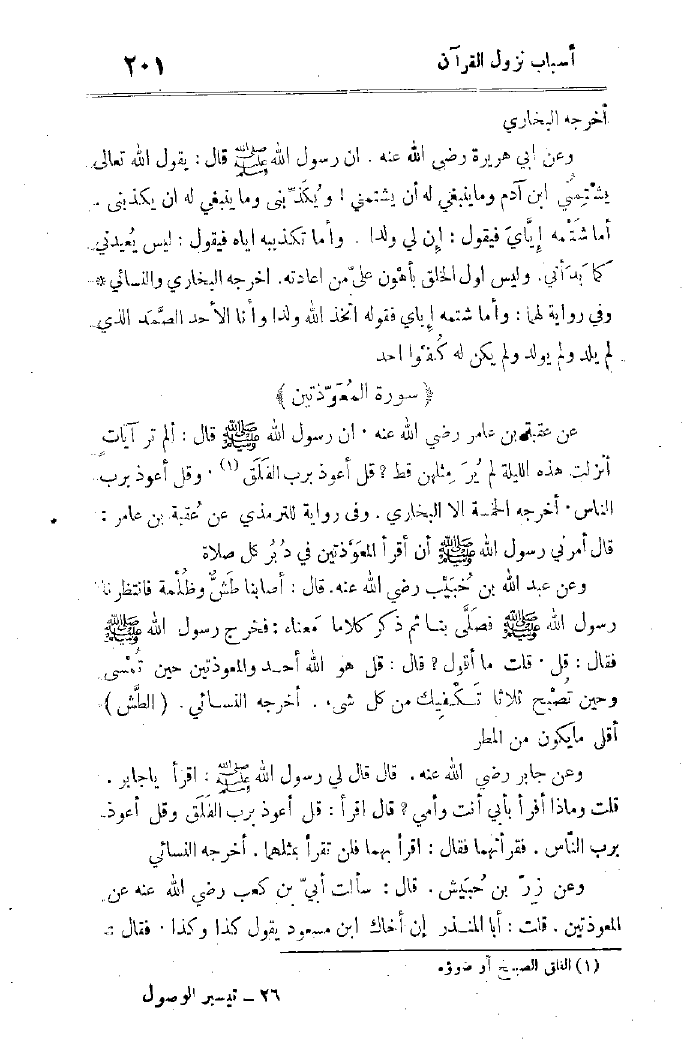 أسباب نزول القرآن ٢٠١
أخرجه البخاري
وعن ابي هريرة رضي الله عنه . ان رسول الله ﷺ قال : يقول الله تعالى
يشْتِمُني ابن آدم وماينبغي له أن يشتمني ! ويُكَذِّبنى وما ينبغي له ان يكذبنى .
أما شَتْمه إِيَّايَ فيقول : إِن لي ولدا . وأما تكذيبه اياه فيقول : ليس يُعيدني
كما بَدَأني . وليس اول الخلق بأهون علىّ من اعادته . اخرجه البخاري والنسائي *
وفي رواية لهما : وأما شتمه إِياي فقوله اتخذ الله ولدا وأنا الأحد الصَّمَد الذي
لم يلد ولم يولد ولم يكن له كُفُوًا احد
﴿ سورة المُعَوّذتين ﴾
عن عقبة بن عامر رضي الله عنه . ان رسول الله ﷺ قال : ألم تر آيات
أنزلت هذه الليلة لم يُرَ مِثلهن قط ? قل أعوذ برب الفَلَق (١) . وقل أعوذ برب
الناس . أخرجه الخمسة الا البخاري . وفى رواية للترمذي عن عُقبة بن عامر :
قال أمرني رسول الله ﷺ أن أقرأ المعَوّذتين في دُبُر كل صلاة
وعن عبد الله بن خُبَيْب رضي الله عنه . قال : أصابنا طَشٌّ وظُلْمة فانتظرنا
رسول الله ﷺ فصَلَّى بنا ثم ذكر كلاما مَعناه : فخرج رسول الله ﷺ
فقال : قل . قلت ما أقول ? قال : قل هو الله أحد والمعوذتين حين تُمْسى
وحين تُصْبح ثلاثا تَكْفِيك من كل شيء . أخرجه النسائي . ( الطَّش )
أقلى مايكون من المطر
وعن جابر رضي الله عنه . قال قال لي رسول الله ﷺ : اقرأ ياجابر .
قلت وماذا أقرأ بأبي أنت وأمي ? قال اقرأ : قل أعوذ برب الفَلَق وقل أعوذ
برب النّاس . فقرأتهما فقال : اقرأ بهما فلن تقرأ بمثلهما . أخرجه النسائي
وعن زِرّ بن حُبَيْش . قال : سألت أُبيّ بن كعب رضي الله عنه عن
المعوذتين . قلت : أبا المنذر إن أخاك ابن مسعود يقول كذا وكذا . فقال :
(١) الفلق الصبح أو ضوؤه
٢٦ ــ تيسير الوصول